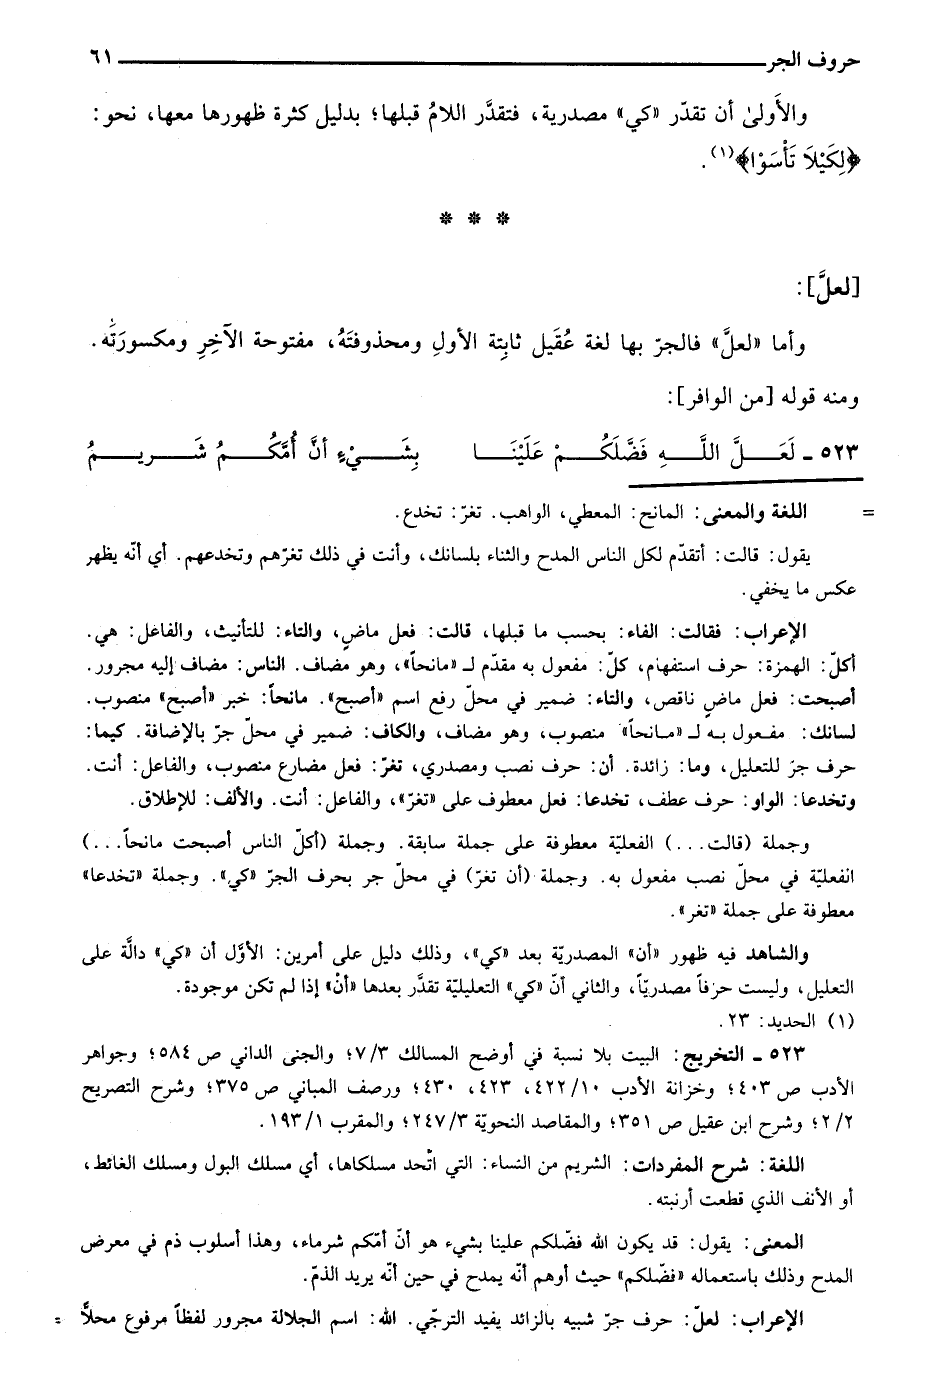 حروف الجر ٦١
والأَولىٰ أن تقدّر «كي» مصدرية، فتقدَّر اللامُ قبلها؛ بدليل كثرة ظهورها معها، نحو:
﴿لِكَيْلَا تَأْسَوْا﴾(١).
* * *
[لعلَّ]:
وأما «لعلَّ» فالجرّ بها لغة عُقَيل ثابِتة الأولِ ومحذوفتَهُ، مفتوحة الآخِرِ ومكسورَتَه.
ومنه قوله [من الوافر]:
٥٢٣ ـ لَعَلَّ اللَّهِ فَضَّلَكُمْ عَلَيْنَا بِشَيْءٍ أنَّ أُمَّكُمُ شَرِيمُ
= اللغة والمعنى: المانح: المعطي، الواهب. تغرّ: تخدع.
يقول: قالت: أتقدّم لكل الناس المدح والثناء بلسانك، وأنت في ذلك تغرّهم وتخدعهم. أي أنّه يظهر
عكس ما يخفي.
الإعراب: فقالت: الفاء: بحسب ما قبلها، قالت: فعل ماضٍ، والتاء: للتأنيث، والفاعل: هي.
أكلّ: الهمزة: حرف استفهام، كلّ: مفعول به مقدّم لـ «مانحاً»، وهو مضاف. الناس: مضاف إليه مجرور.
أصبحت: فعل ماضٍ ناقص، والتاء: ضمير في محلّ رفع اسم «أصبح». مانحاً: خبر «أصبح» منصوب.
لسانك: مفعول به لـ «مانحاً» منصوب، وهو مضاف، والكاف: ضمير في محلّ جرّ بالإضافة. كيما:
حرف جرّ للتعليل، وما: زائدة. أن: حرف نصب ومصدري، تغرّ: فعل مضارع منصوب، والفاعل: أنت.
وتخدعا: الواو: حرف عطف، تخدعا: فعل معطوف على «تغرّ»، والفاعل: أنت. والألف: للإطلاق.
وجملة (قالت...) الفعليّة معطوفة على جملة سابقة. وجملة (أكلّ الناس أصبحت مانحاً...)
الفعليّة في محلّ نصب مفعول به. وجملة (أن تغرّ) في محلّ جر بحرف الجرّ «كي». وجملة «تخدعا»
معطوفة على جملة «تغر».
والشاهد فيه ظهور «أن» المصدريّة بعد «كي»، وذلك دليل على أمرين: الأوّل أن «كي» دالَّة على
التعليل، وليست حرفاً مصدريّاً، والثاني أنّ «كي» التعليليّة تقدَّر بعدها «أنْ» إذا لم تكن موجودة.
(١) الحديد: ٢٣.
٥٢٣ ـ التخريج: البيت بلا نسبة في أوضح المسالك ٧/٣؛ والجنى الداني ص ٥٨٤؛ وجواهر
الأدب ص ٤٠٣؛ وخزانة الأدب ٤٢٢/١٠، ٤٢٣، ٤٣٠؛ ورصف المباني ص ٣٧٥؛ وشرح التصريح
٢/٢؛ وشرح ابن عقيل ص ٣٥١؛ والمقاصد النحويّة ٢٤٧/٣؛ والمقرب ١٩٣/١.
اللغة: شرح المفردات: الشريم من النساء: التي اتّحد مسلكاها، أي مسلك البول ومسلك الغائط،
أو الأنف الذي قطعت أرنبته.
المعنى: يقول: قد يكون الله فضّلكم علينا بشيء هو أنّ أمّكم شرماء، وهذا أسلوب ذم في معرض
المدح وذلك باستعماله «فضّلكم» حيث أوهم أنّه يمدح في حين أنّه يريد الذمّ.
الإعراب: لعلّ: حرف جرّ شبيه بالزائد يفيد الترجّي. الله: اسم الجلالة مجرور لفظاً مرفوع محلاًّ =